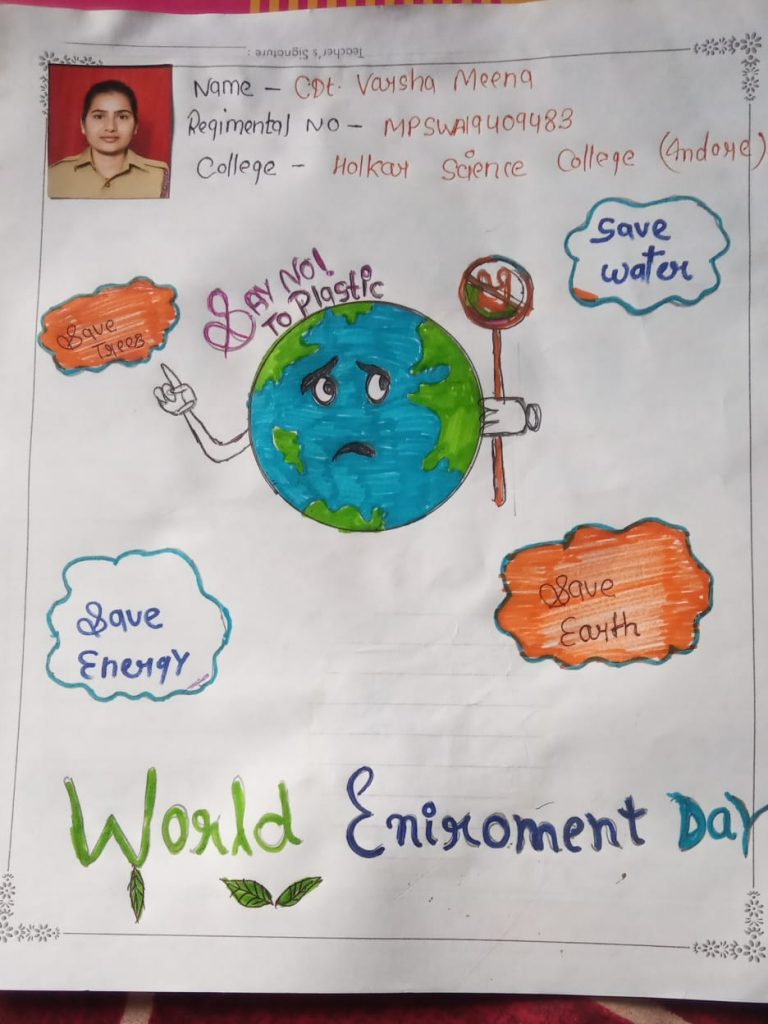 Teacher's Signature :
Name - CDt. Varsha Meena
Regimental NO - MPSWA19409483
College - Holkar Science College (Indore)
Save
water
SAY NO!
TO Plastic
Save
Trees
Save
Earth
Save
Energy
World Eniroment Day